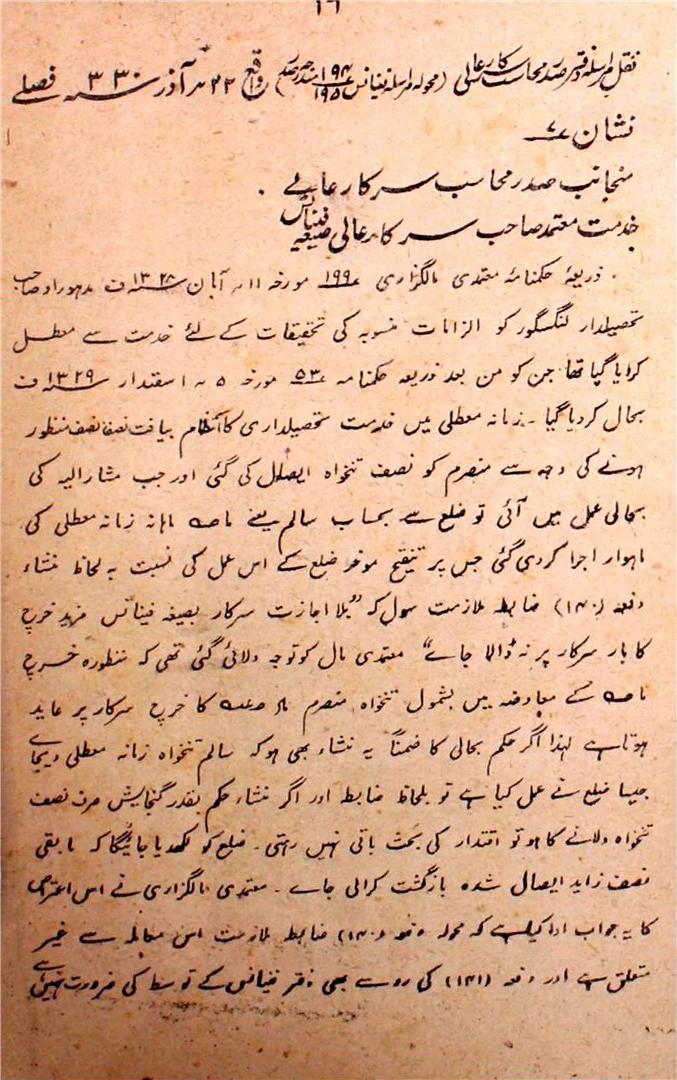 ۱۶
نقل مراسلہ دفتر صدر محاسب سرکار عالی (محولہ مراسلہ فینانس ۱۹۴ ۱۹۵) واقع ۲۳ ؍ آذر ۱۳۳۰ فصلی
نشان ۷
منجانب صدر محاسب سرکار عالی .
خدمت معتمد صاحب سرکار عالی صیغہ فینانس
ذریعۂ حکمنامۂ معتمدی مالگزاری ۱۹۹ مورخہ ۱۱ ؍ آبان ۱۳۲۸ ف مدہوراؤ صاحب
تحصیلدار لنگسگور کو الزامات منسوبہ کی تحقیقات کے لئے خدمت سے معطل
کرایا گیا تھا جن کو من بعد ذریعہ حکمنامہ ۵۳ مورخہ ۵ ؍ اسفندار ۱۳۲۹ ف
بحال کر دیا گیا ۔ زمانہ معطلی میں خدمت تحصیلداری کا انتظام بیافت نصفا نصف منظور
ہونے کی وجہ سے منصرم کو نصف تنخواہ ایصال کی گئی اور جب مشارالیہ کی
بحالی عمل میں آئی تو ضلع سے بحساب سالم یعنے ماہانہ زمانہ معطلی کی
ماہوار اجرا کر دی گئی جس پر تنقیح موخر ضلع کے اس عمل کی نسبت بہ لحاظ منشاء
دفعہ (۱۴۰) ضابطہ ملازمت سول کہ ”بلا اجازت سرکار بصیغہ فینانس مزید خرچ
کا بار سرکار پر نہ ڈالا جاے“ معتمدی مال کو توجہ دلائی گئی تھی کہ منظورہ خرچ
کے معاوضہ میں بشمول تنخواہ منصرم کا خرچ سرکار پر عاید
ہوتا ہے لہذا اگر حکم بحالی کا ضمناً یہ منشاء بھی ہو کہ سالم تنخواہ زمانہ معطلی دیجاے
جیسا ضلع نے عمل کیا ہے تو بلحاظ ضابطہ اور اگر منشاء حکم بقدر گنجایش صرف نصف
تنخواہ دلانے کا ہو تو اقتدار کی بحث باقی نہیں رہتی ۔ ضلع کو لکھدیا جائیگا کہ مابقی
نصف زاید ایصال شدہ بازگشت کرالی جاے ۔ معتمدی مالگزاری نے اس اعتراض
کا یہ جواب ادا کیا ہے کہ محولہ دفعہ (۱۴۰) ضابطہ ملازمت اس معاملہ سے غیر
متعلق ہے اور دفعہ (۱۴۱) کی رو سے بھی دفتر فینانس کے توسط کی ضرورت نہیں ہے